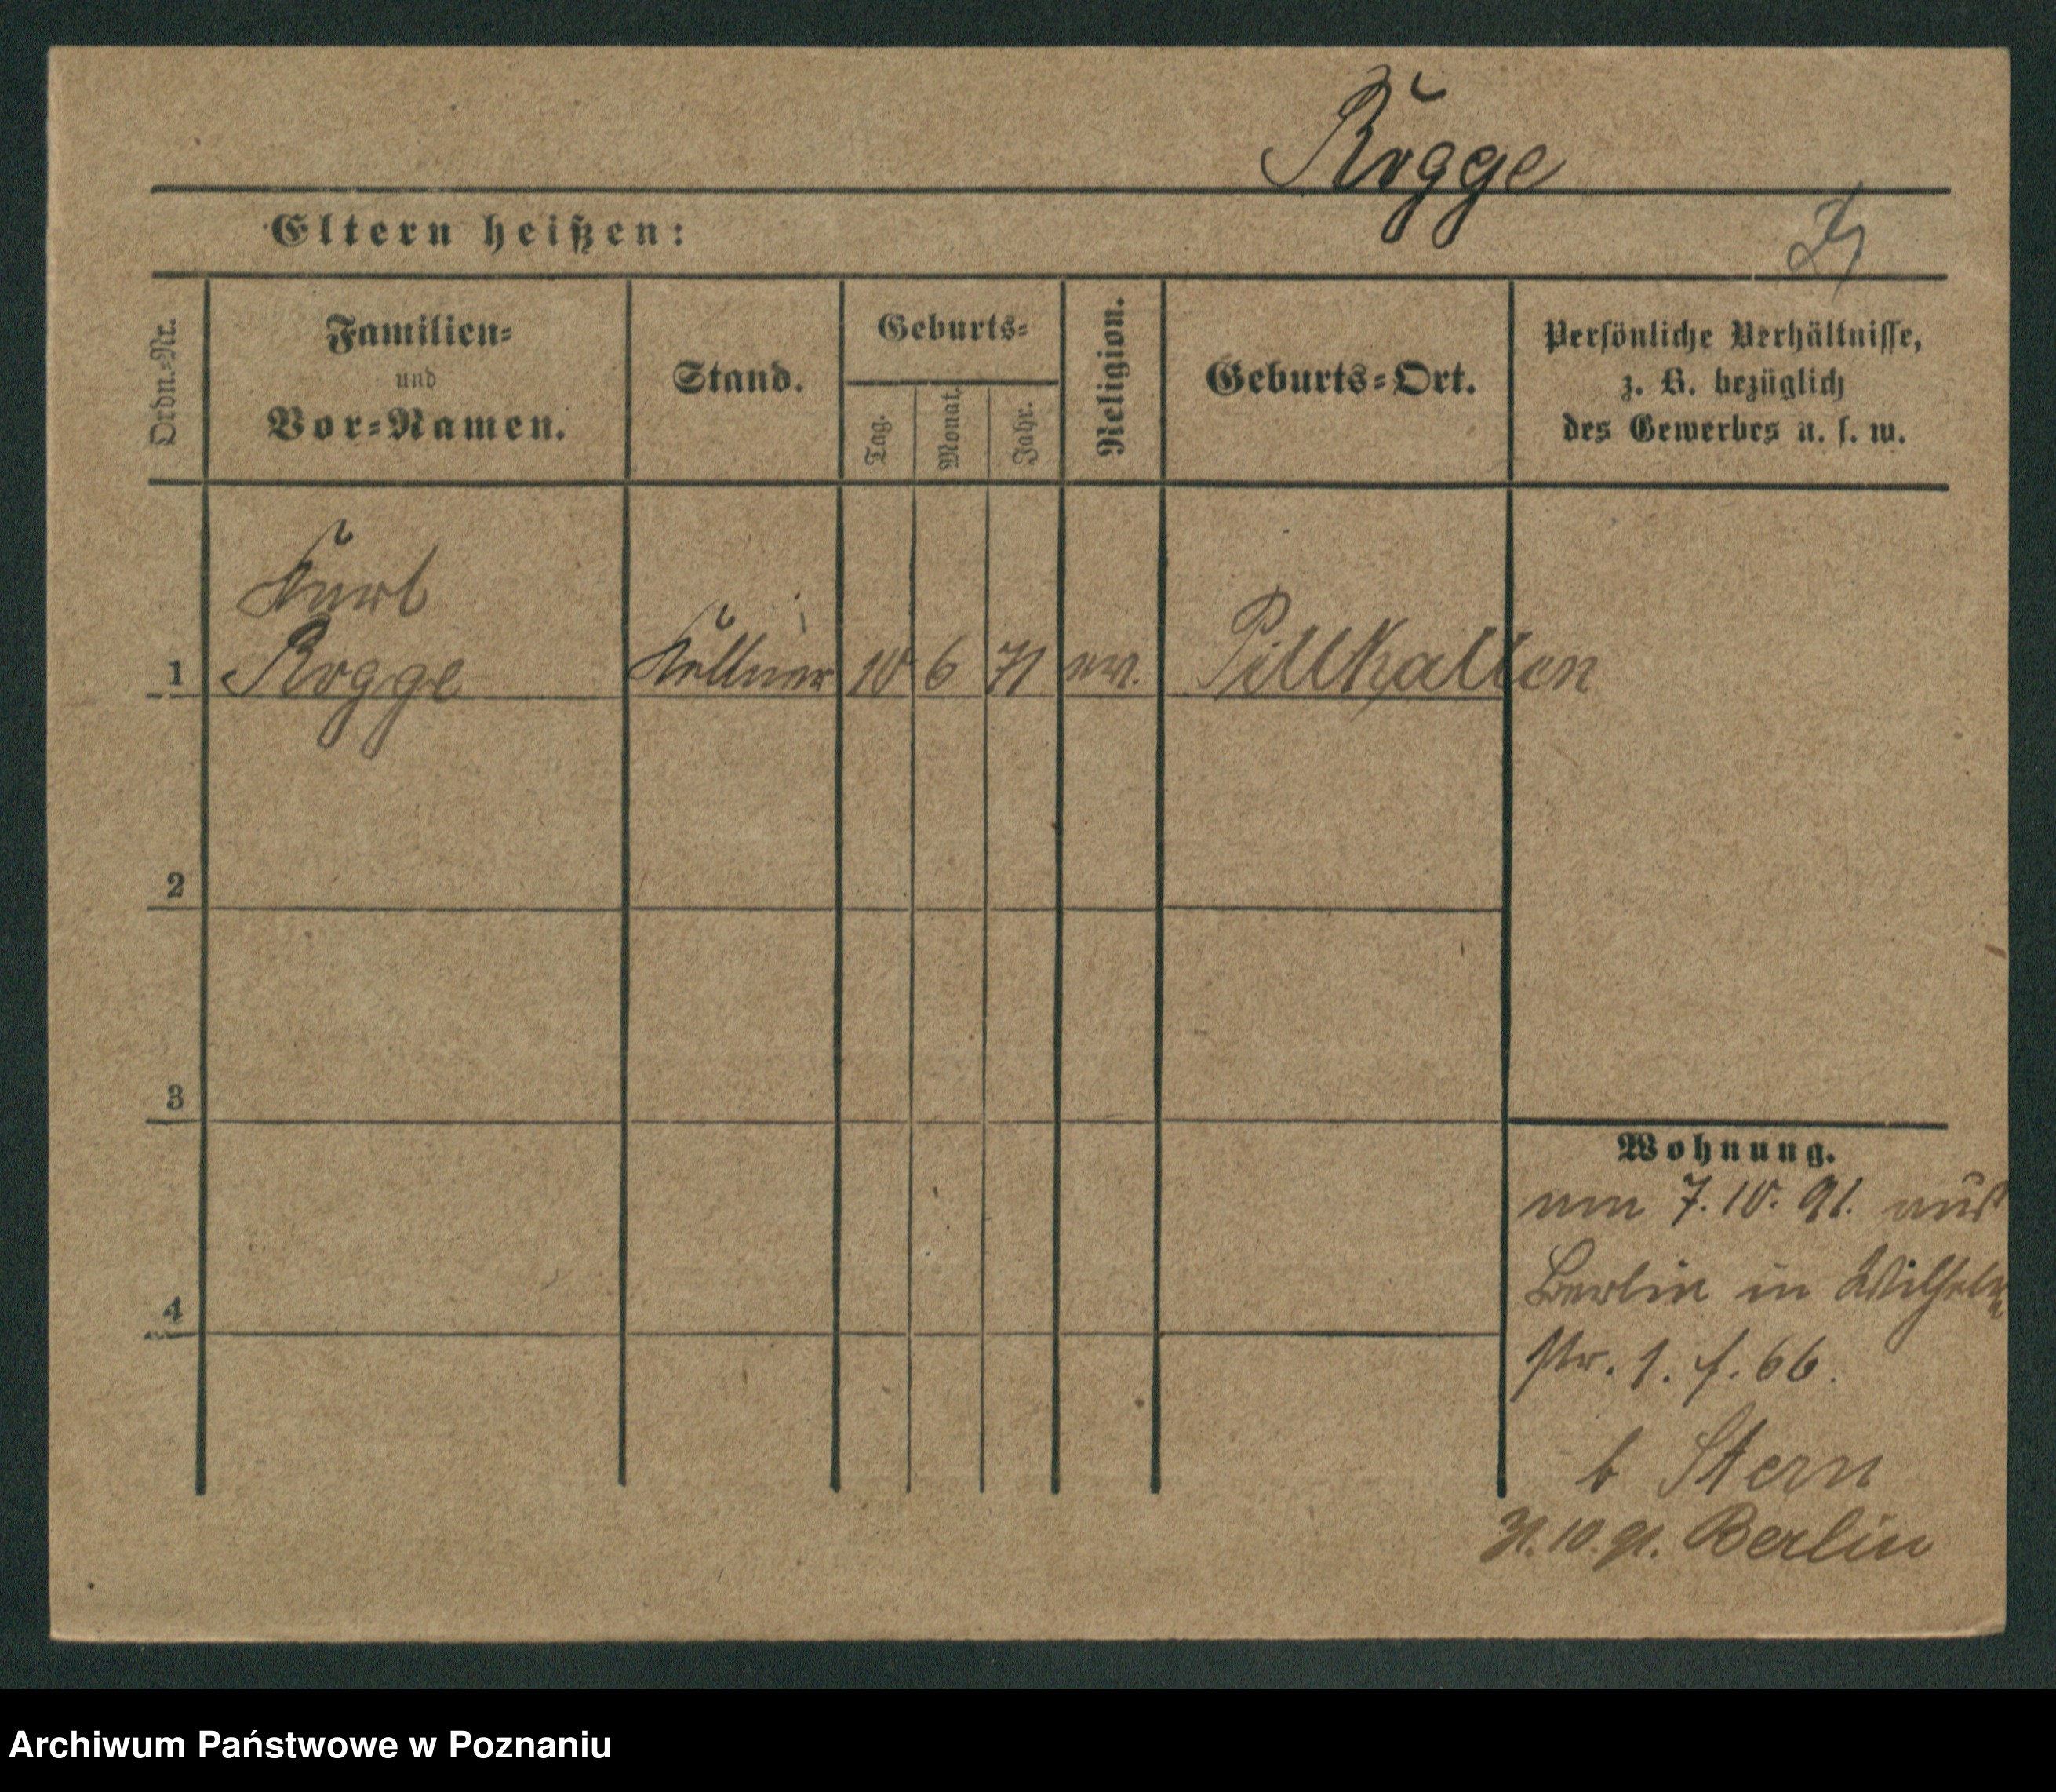 Rogge
Eltern heißen:
Ordn.-Nr.
Familien-
und
Vor-Namen.
Stand.
Geburts-
Tag.
Monat.
Jahr.
Religion.
Geburts-Ort.
Persönliche Verhältnisse,
z. B. bezüglich
des Gewerbes u. s. w.
Kurt
1 Rogge Kellner 10 6 71 ev. Pillkallen
2
3
4
Wohnung.
am 7.10.91. aus
Berlin in Wilhelm
Str. 1. f. 66.
b Stern
31.10.91. Berlin
Archiwum Państwowe w Poznaniu